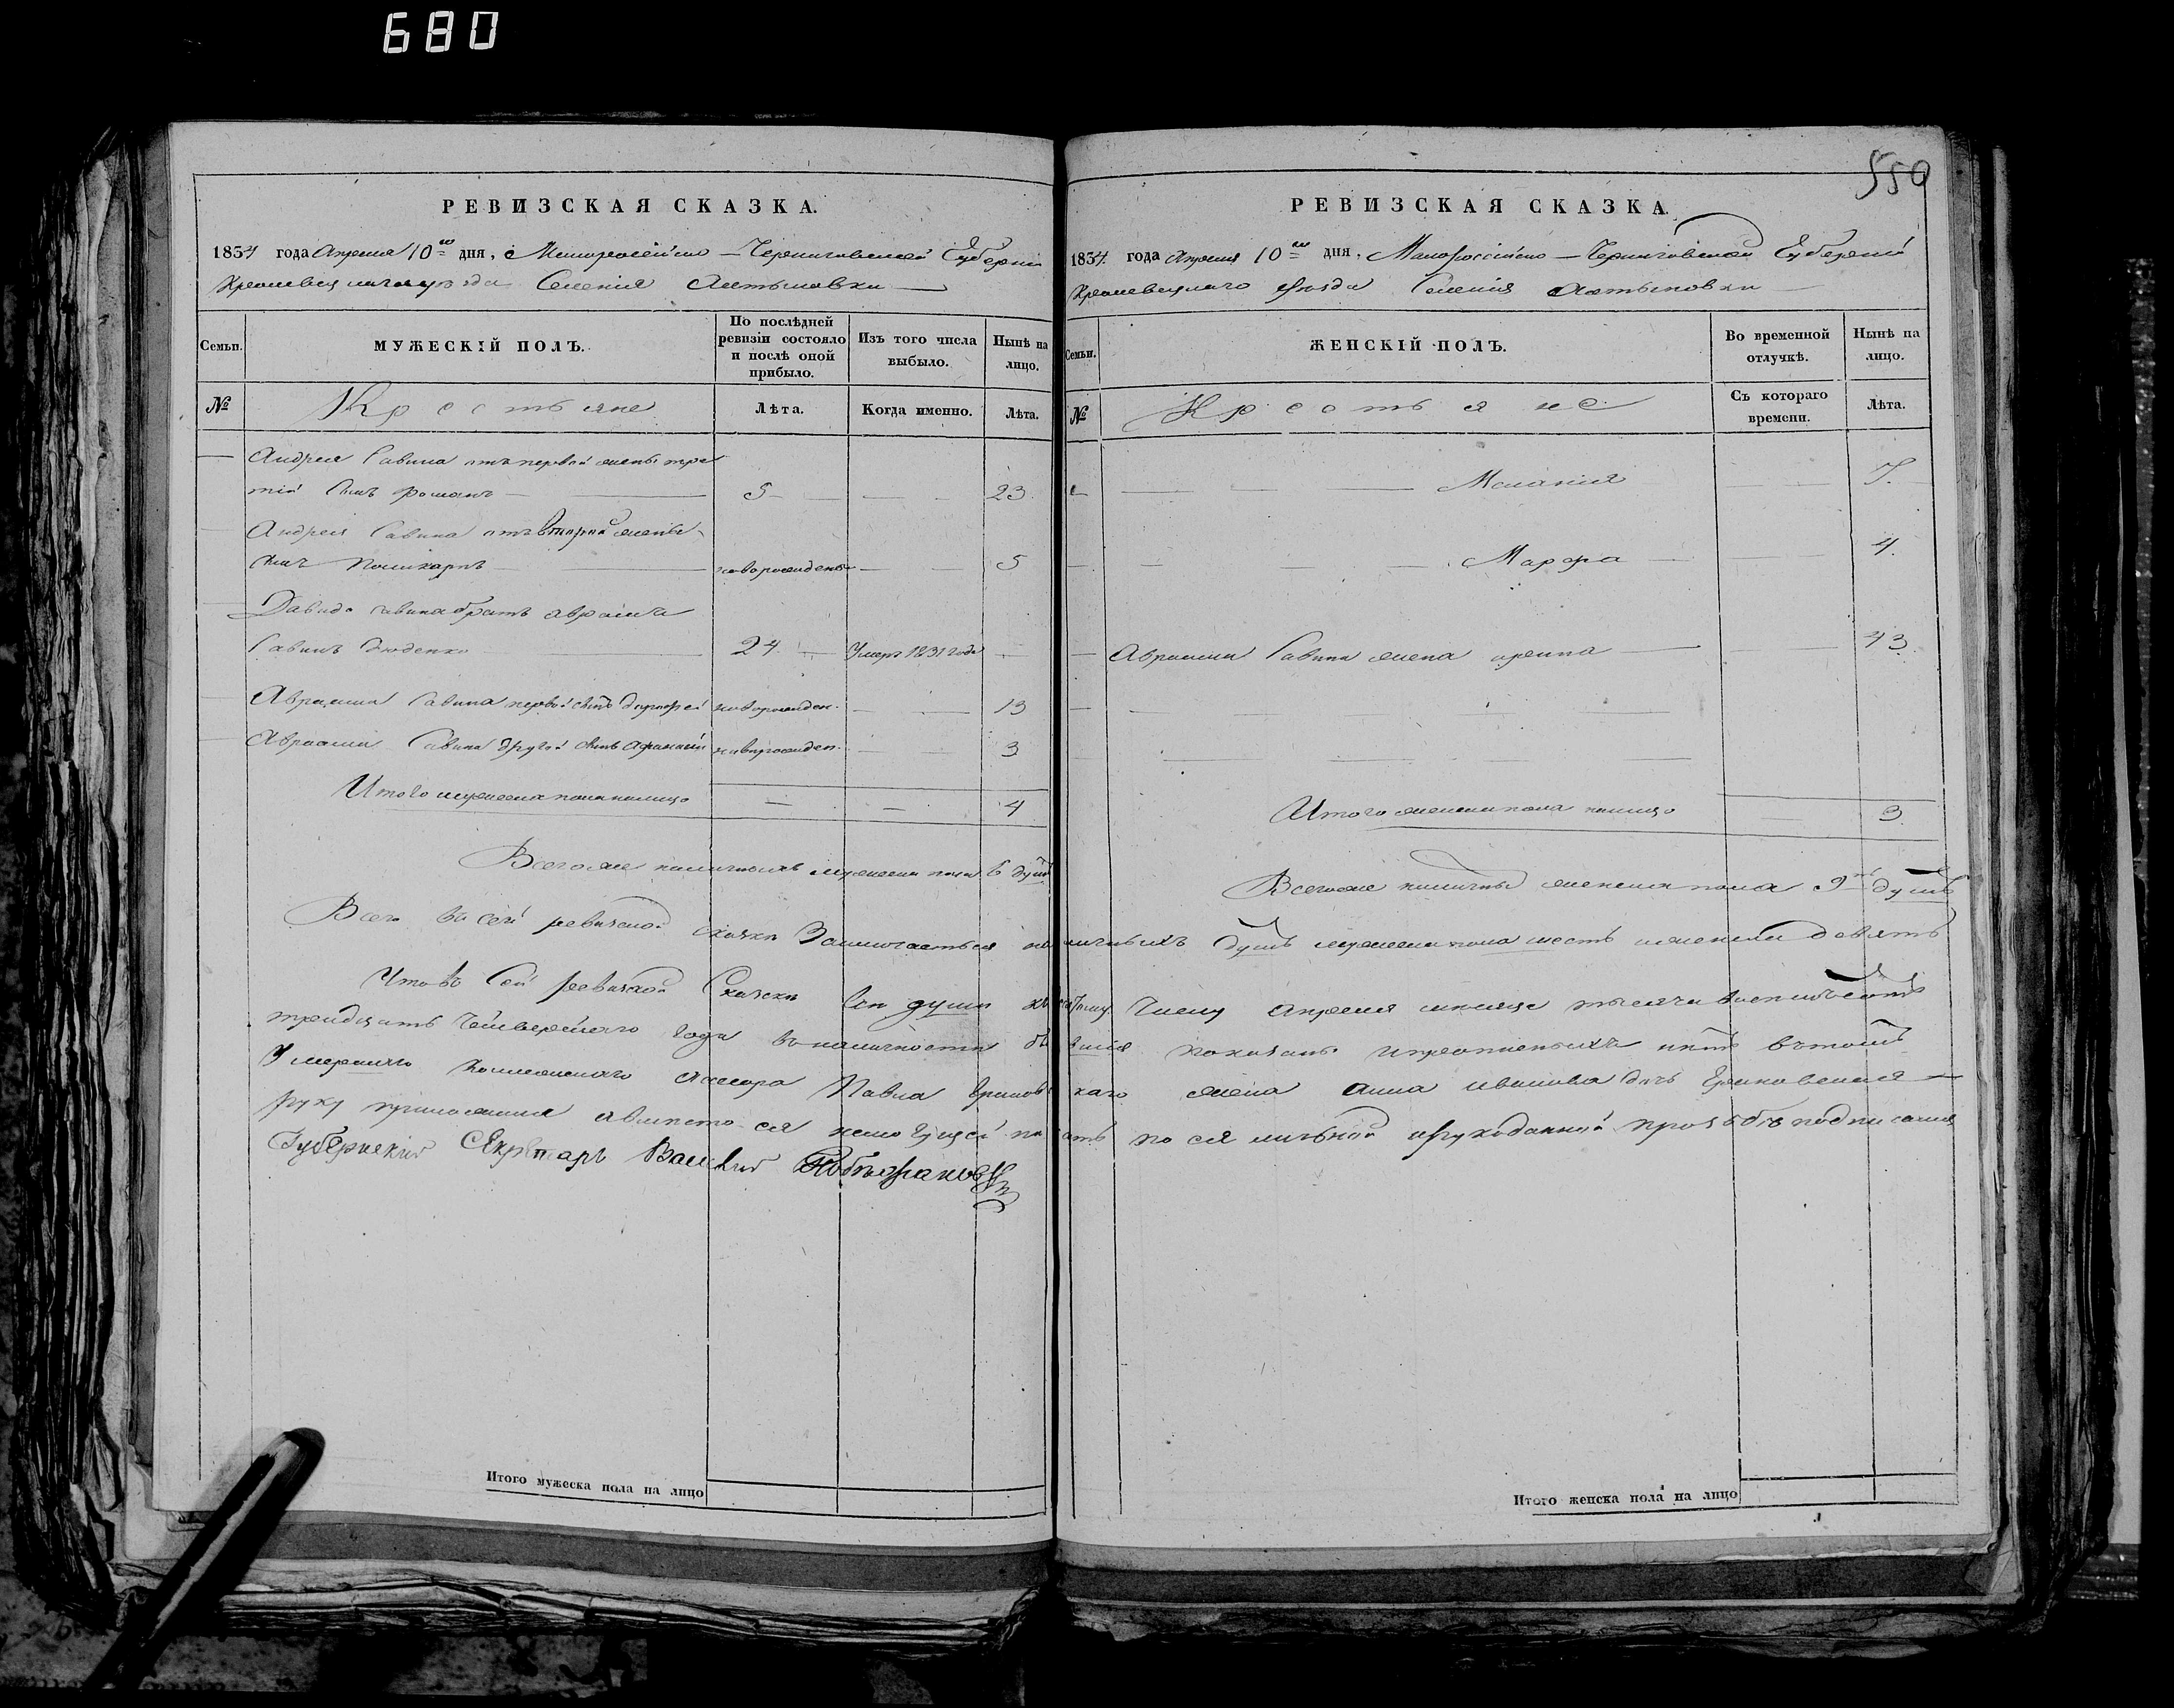 680
550
РЕВИЗСКАЯ СКАЗКА.
1834 года Апреля 10го дня, Малороссійско — Черниговской Губерніи
Кролевецкого уезда Селенія
Семьи.
МУЖЕСКІЙ ПОЛЪ.
По послѣдней ревизіи состояло и послѣ оной прибыло.
Изъ того числа выбыло.
Нынѣ на лицо.
№
Крестьяне
Лѣта.
Когда именно.
Лѣта.
Андрея Савина отъ первой жены тре
тій сынъ Романъ 5 23
Андрея Савина отъ второй жены
сынъ Поликарпъ новорожденъ 5
Давида Савина братъ Авраамъ
Савинъ 24 Умеръ 1831 года
Авраама Савина первой сынъ Дорофей новорожден. 13
Авраама Савина другой сынъ Афанасій новорожден. 3
Итого мужеска пола налицо 4
Всего же наличныхъ мужеска пола 6 душъ
РЕВИЗСКАЯ СКАЗКА.
1834 года Апреля 10го дня, Малороссійско — Черниговской Губерніи
Кролевецкаго уезда Селенія
Семьи.
ЖЕНСКІЙ ПОЛЪ.
Во временной отлучкѣ.
Нынѣ на лицо.
№
Крестьяне
Съ котораго времени.
Лѣта.
Меланія 7.
Марфа 4.
Авраама Савина жена Арина 43.
Итого женска пола налицо 3
Всего же наличныхъ женска пола 9ть душъ
Всего въ сей ревизской сказки Заключается наличныхъ душъ мужеска пола шесть женска девять
Что въ Сей ревизской Сказки все души къ числу Апреля месяца тысяча восемьсотъ
тридцать четвертаго года въ наличности показаны и прописныхъ нетъ въ томъ
Умершаго Павла жена Анна Иванова дочь
руку приложила а вместо ея неможущей писать по ея личной и рукоданной прозьбе подписался
Губернскій Секретарь
Итого мужеска пола на лицо
Итого женска пола на лицо